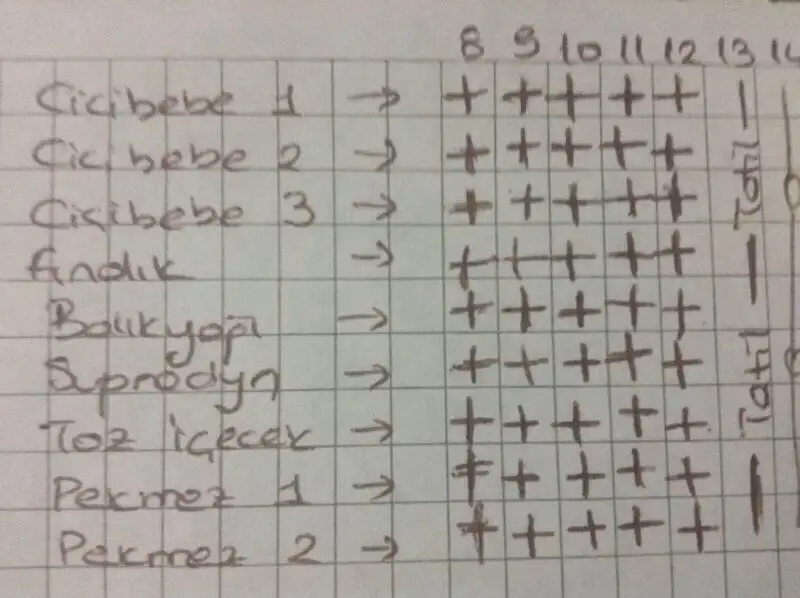 8 9 10 11 12 13 14
Cicibebe 1 → + + + + + —
Cicibebe 2 → + + + + + Tatil
Cicibebe 3 → + + + + +
fındık → + + + + + —
Balıkyağı → + + + + +
Supradyn → + + + + + Tatil
Toz içecek → + + + + +
Pekmez 1 → + + + + + —
Pekmez 2 → + + + + +